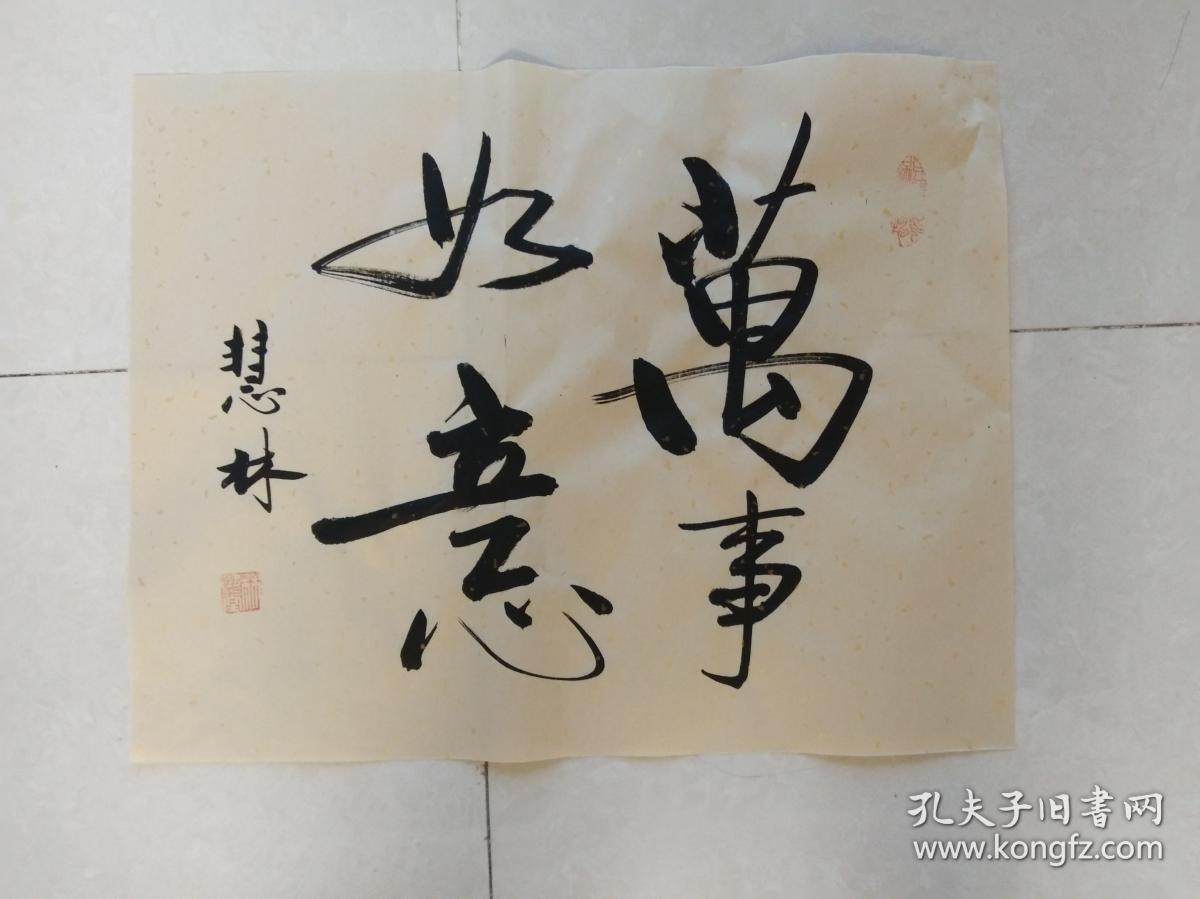 萬事
如意
慧林
孔夫子旧书网
www.kongfz.com